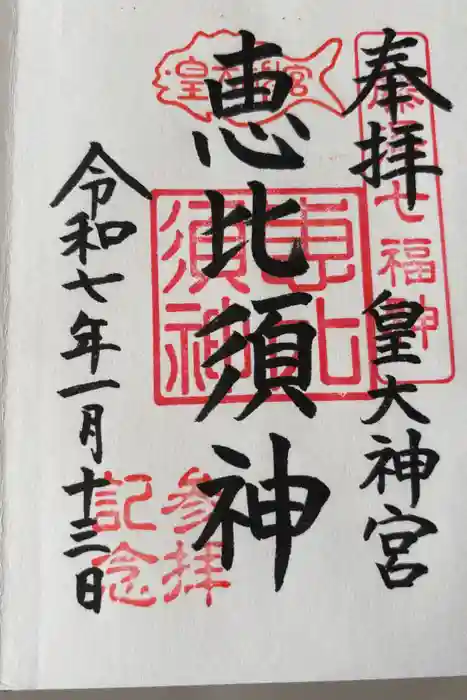 奉拝
皇大神宮
藤沢七福神
恵比須神
皇大神宮
恵比須神
参拝記念
令和七年一月十三日